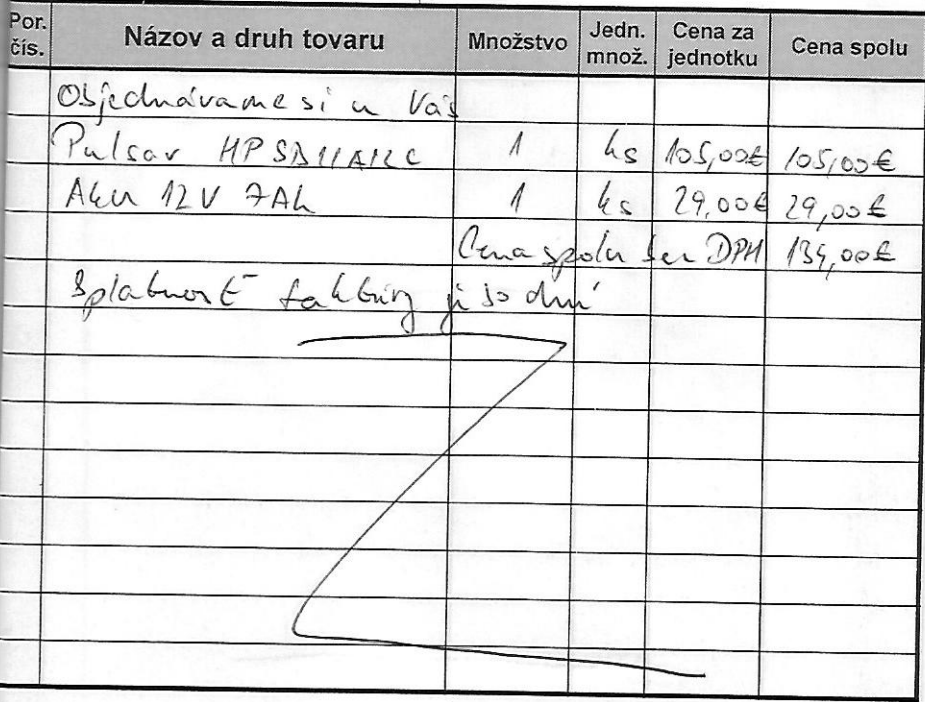 Por. čís. Názov a druh tovaru Množstvo Jedn. množ. Cena za jednotku Cena spolu
Objednávame si u Vás
Pulsar HPSB11A12C 1 ks 105,00€ 105,00€
Aku 12V 7Ah 1 ks 29,00€ 29,00€
Cena spolu bez DPH 134,00€
Splatnosť faktúry je 30 dní